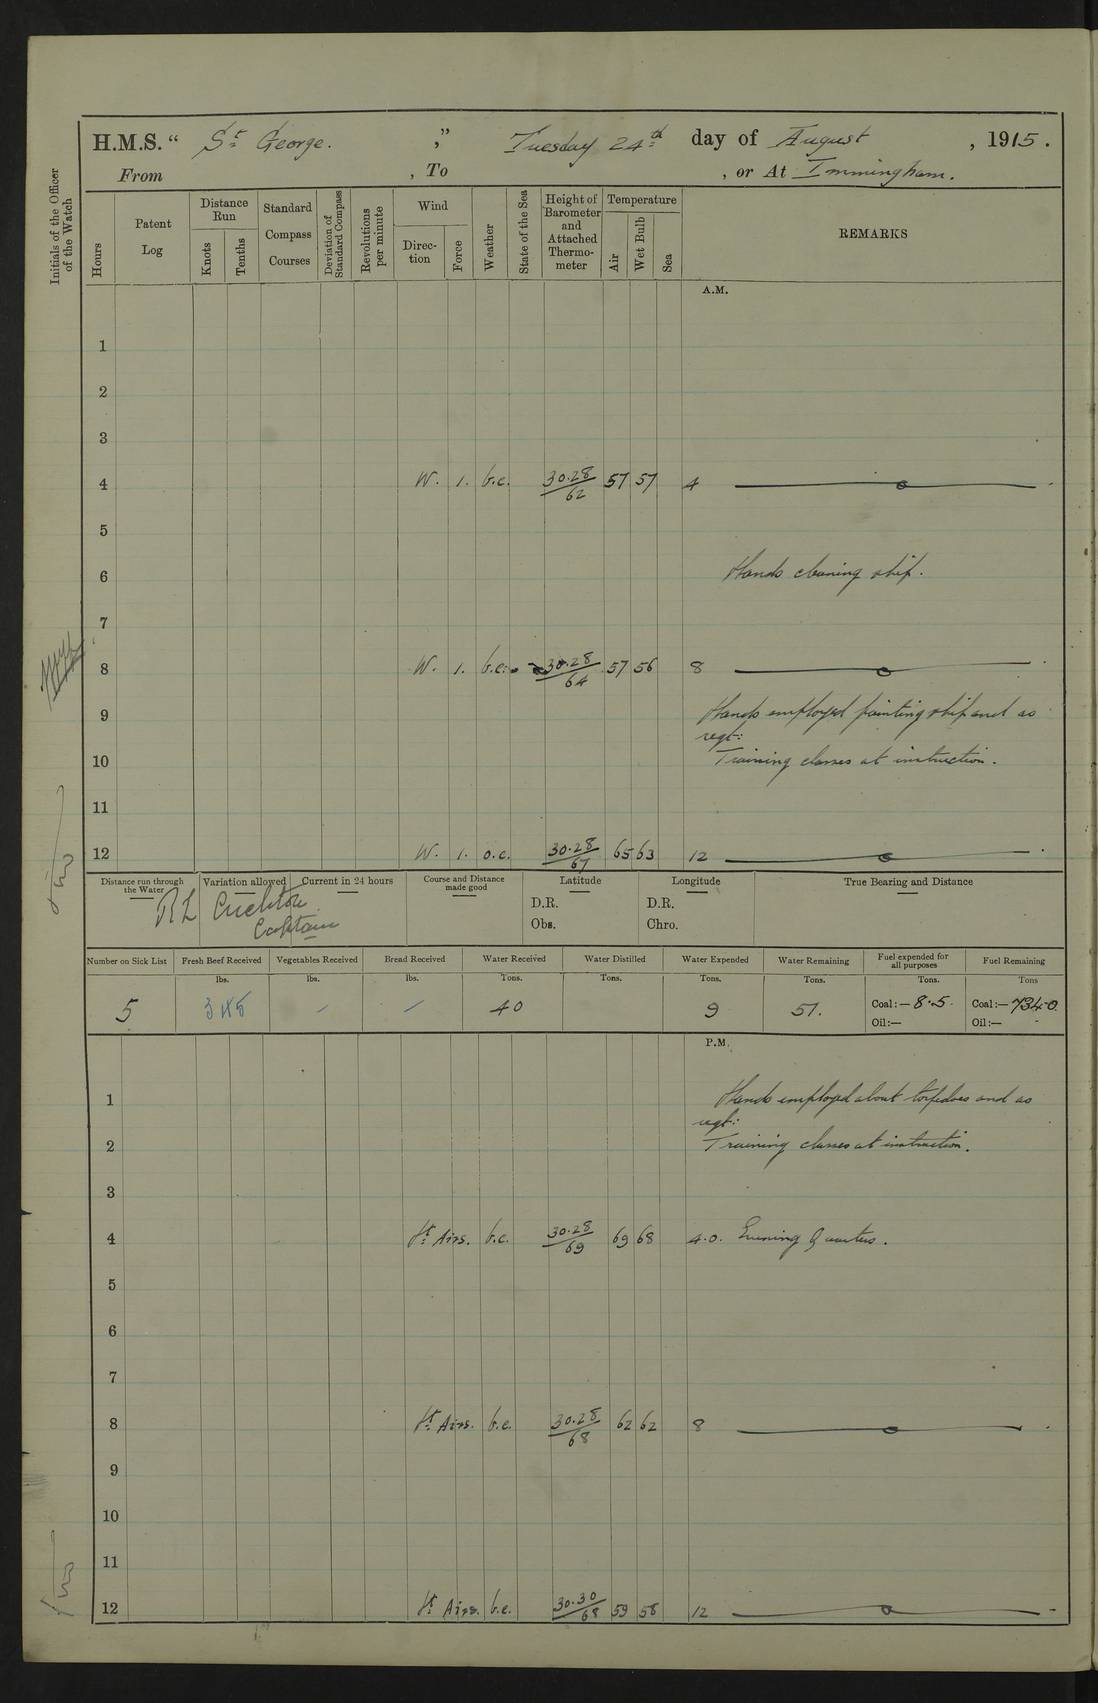 H.M.S. “ St George. ”, Tuesday 24th day of August, 1915.
From , To , or At Immingham.
Initials of the Officer of the Watch
Hours
Patent Log
Distance Run
Knots
Tenths
Standard Compass Courses
Deviation of Standard Compass
Revolutions per minute
Wind
Direc-tion
Force
Weather
State of the Sea
Height of Barometer and Attached Thermo-meter
Temperature
Air
Wet Bulb
Sea
REMARKS
A.M.
1
2
3
4 W. 1. b.c. 30.28/62 57 57 4
5
6 Hands cleaning ship.
7
8 W. 1. b.c. 30.28/64 57 56 8
9 Hands employed painting ship and as
reqt:
10 Training classes at instruction.
11
12 W. 1. o.c. 30.28/67 65 63 12
Distance run through the Water
Variation allowed
Current in 24 hours
Course and Distance made good
Latitude
D.R.
Obs.
Longitude
D.R.
Chro.
True Bearing and Distance
R L Crichton
Captain
Number on Sick List
Fresh Beef Received
Vegetables Received
Bread Received
Water Received
Water Distilled
Water Expended
Water Remaining
Fuel expended for all purposes
Fuel Remaining
lbs. lbs. lbs. Tons. Tons. Tons. Tons. Tons. Tons
5 - - 40 9 51. Coal:— 8.5. Coal:— 734.0.
Oil:— Oil:— -
P.M.
1 Hands employed about torpedoes and as
reqt:
2 Training classes at instruction.
3
4 Lt Airs. b.c. 30.28/69 69 68 4.0. Evening Quarters.
5
6
7
8 Lt Airs. b.c. 30.28/68 62 62 8
9
10
11
12 Lt Airs. b.c. 30.30/68 59 58 12